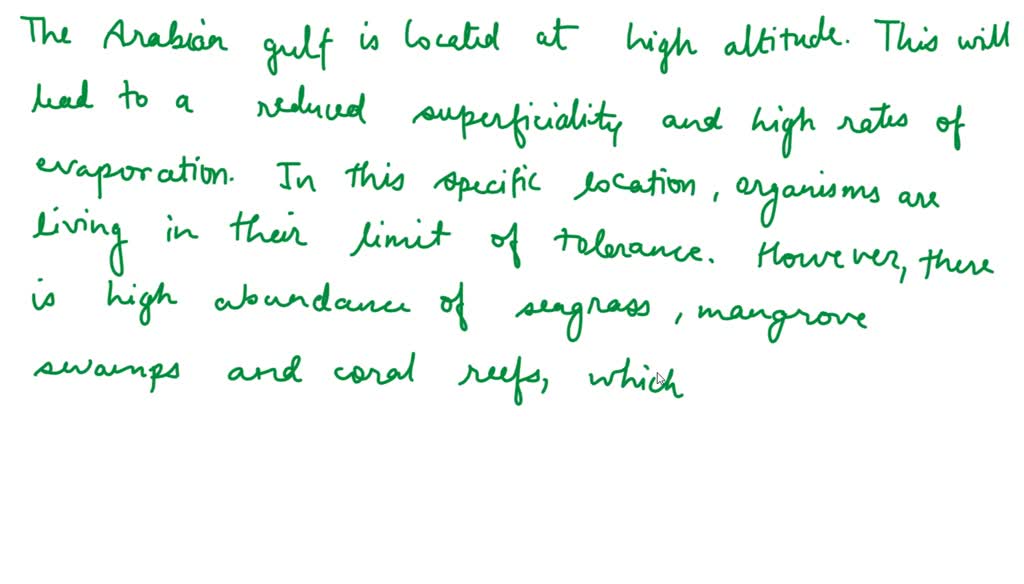 The Arabian gulf is located at high altitude. This will
lead to a reduced superficiality and high rates of
evaporation. In this specific location, organisms are
living in their limit of tolerance. However, there
is high abundance of seagrass, mangrove
swamps and coral reefs, which